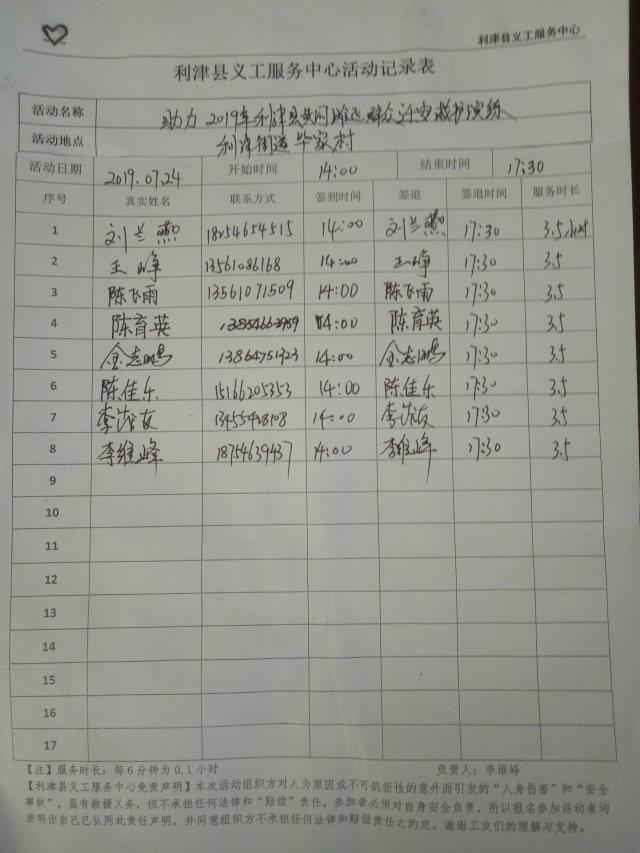 利津县义工服务中心
利津县义工服务中心活动记录表
活动名称 助力2019年利津县黄河滩区群众迁安救护演练
活动地点 利津街道毕家村
活动日期 2019.07.24 开始时间 14:00 结束时间 17:30
序号 真实姓名 联系方式 签到时间 签退 签退时间 服务时长
1 刘兰燕 18254654515 14:00 刘兰燕 17:30 3.5小时
2 王峥 13561086168 14:00 王峥 17:30 3.5
3 陈飞雨 13561071509 14:00 陈飞雨 17:30 3.5
4 陈育英 14:00 陈育英 17:30 3.5
5 金志鹏 13864751323 14:00 金志鹏 17:30 3.5
6 陈佳乐 15166205353 14:00 陈佳乐 17:30 3.5
7 李 友 14:00 李 友 17:30 3.5
8 李维峰 18754639437 14:00 李维峰 17:30 3.5
9
10
11
12
13
14
15
16
17
【注】服务时长：每6分钟为0.1小时 负责人：李维峰
【利津县义工服务中心免责声明】本次活动组织方对人为原因或不可抗拒性的意外而引发的“人身伤害”和“安全
事故”，虽有救援义务，但不承担任何法律和“赔偿”责任。参加者必须对自身安全负责，所以报名参加活动者均
表明你自己已认同此责任声明，并同意组织方不承担任何法律和赔偿责任之约定。谢谢工友们的理解与支持。